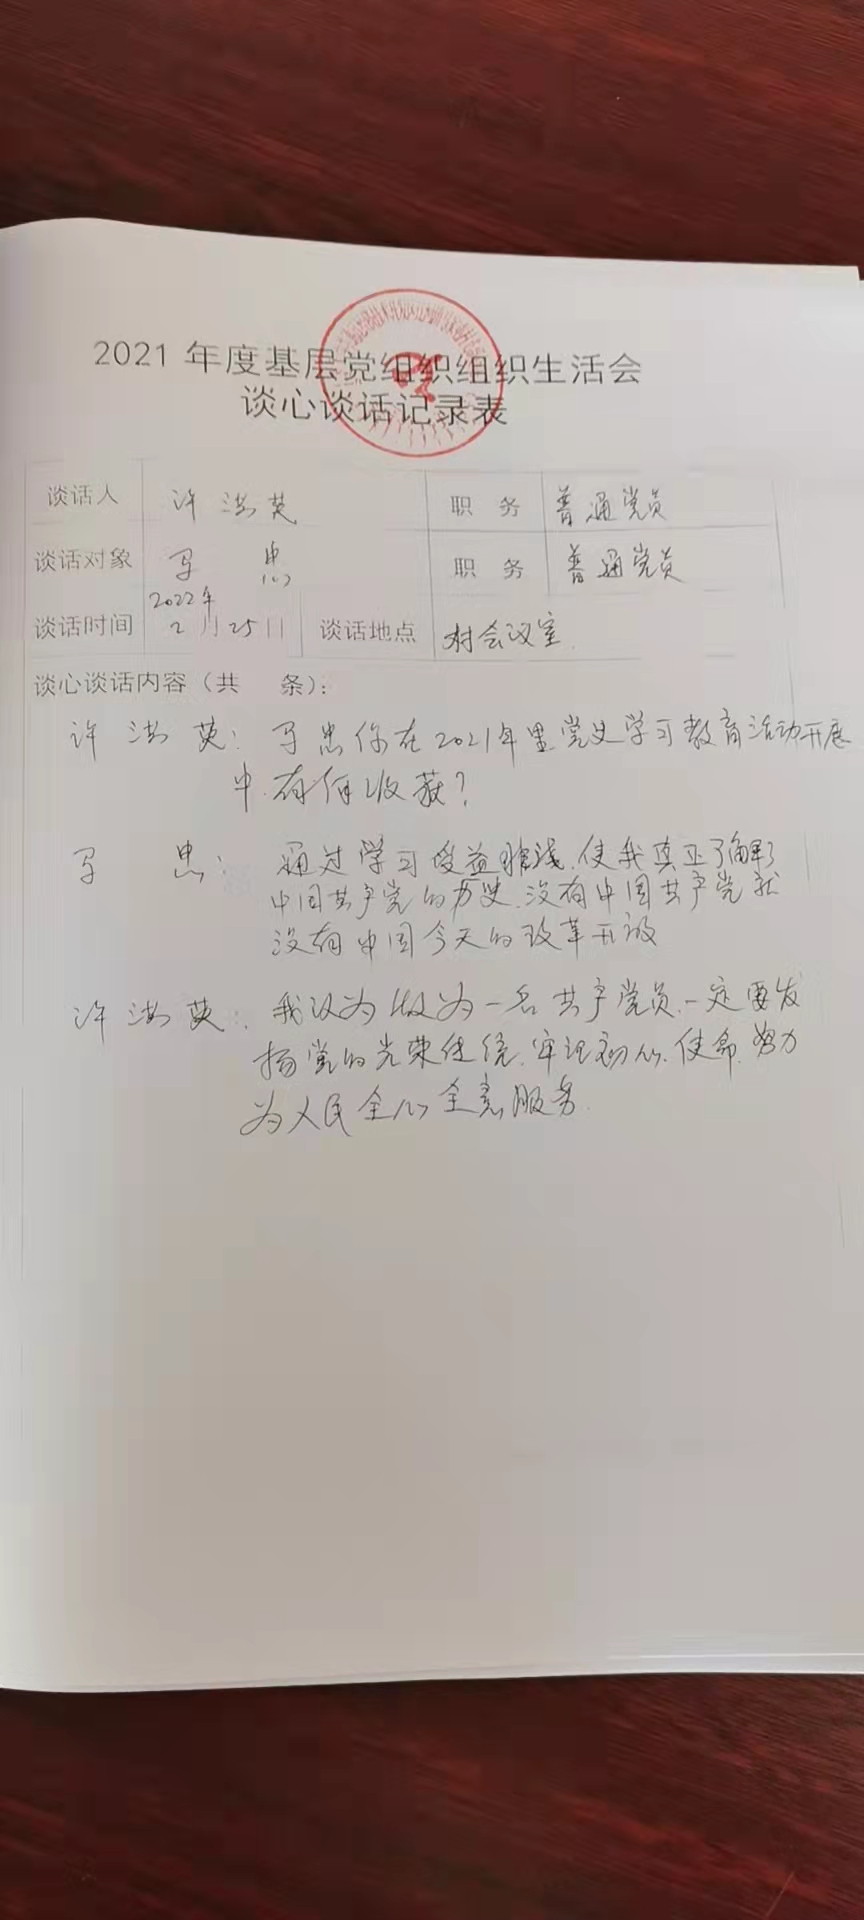 2021 年度基层党组织组织生活会
谈心谈话记录表
谈话人 许洪英 职 务 普通党员
谈话对象 马忠 职 务 普通党员
谈话时间 2022年2月25日 谈话地点 村会议室
谈心谈话内容（共 条）：
许洪英：马忠你在2021年里党史学习教育活动开展
中.有何收获？
马忠：通过学习受益,使我真正了解了
中国共产党的历史.没有中国共产党就
没有中国今天的改革开放
许洪英：我认为做为一名共产党员.一定要发
扬党的光荣传统.牢记初心.使命.努力
为人民全心全意服务.